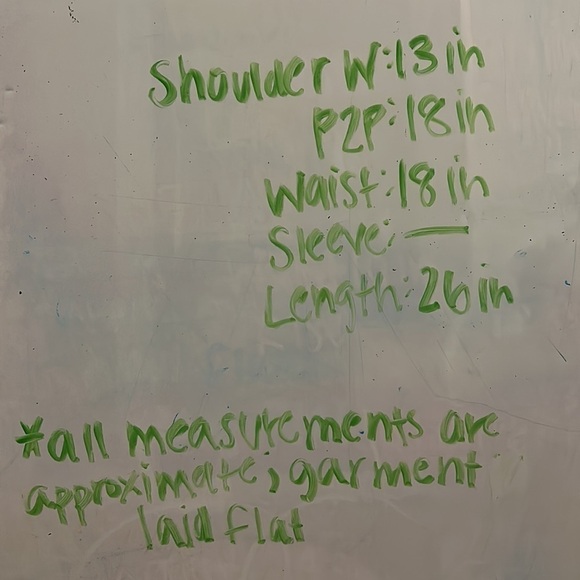 Shoulder W:13in
P2P:18in
Waist:18in
Sleeve:—
Length:26in
*all measurements are
approximate, garment
laid flat